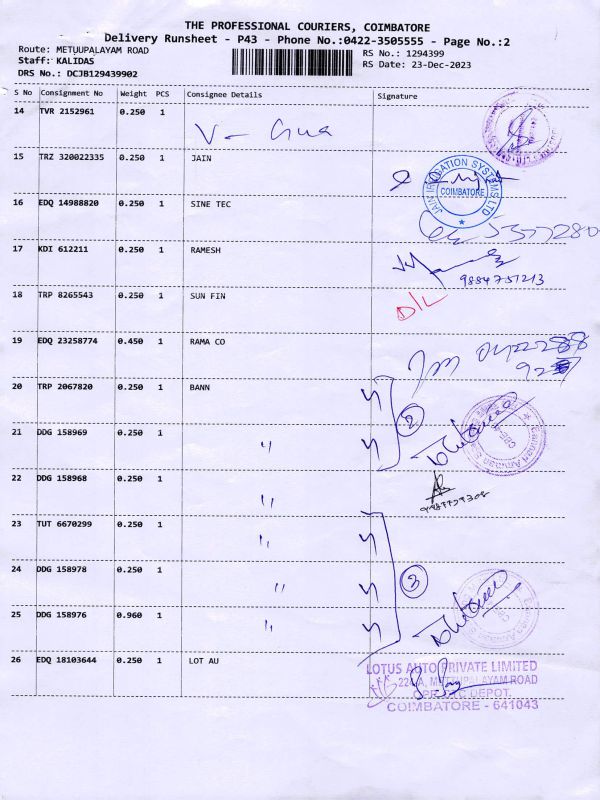 THE PROFESSIONAL COURIERS, COIMBATORE
Delivery Runsheet - P43 - Phone No.:0422-3505555 - Page No.:2
Route: METUUPALAYAM ROAD
RS No.: 1294399
Staff: KALIDAS
RS Date: 23-Dec-2023
DRS No.: DCJB129439902
S No Consignment No Weight PCS Consignee Details Signature
14 TVR 2152961 0.250 1
15 TRZ 320022335 0.250 1 JAIN
JAIN IRRIGATION SYSTEMS LTD
COIMBATORE
16 EDQ 14988820 0.250 1 SINE TEC
17 KDI 612211 0.250 1 RAMESH
9884751213
18 TRP 8265543 0.250 1 SUN FIN
D/L
19 EDQ 23258774 0.450 1 RAMA CO
20 TRP 2067820 0.250 1 BANN
2
21 DDG 158969 0.250 1 "
22 DDG 158968 0.250 1 "
23 TUT 6670299 0.250 1 "
24 DDG 158978 0.250 1 "
3
25 DDG 158976 0.960 1 "
26 EDQ 18103644 0.250 1 LOT AU
LOTUS AUTO PRIVATE LIMITED
METTUPALAYAM ROAD
DEPOT,
COIMBATORE - 641043